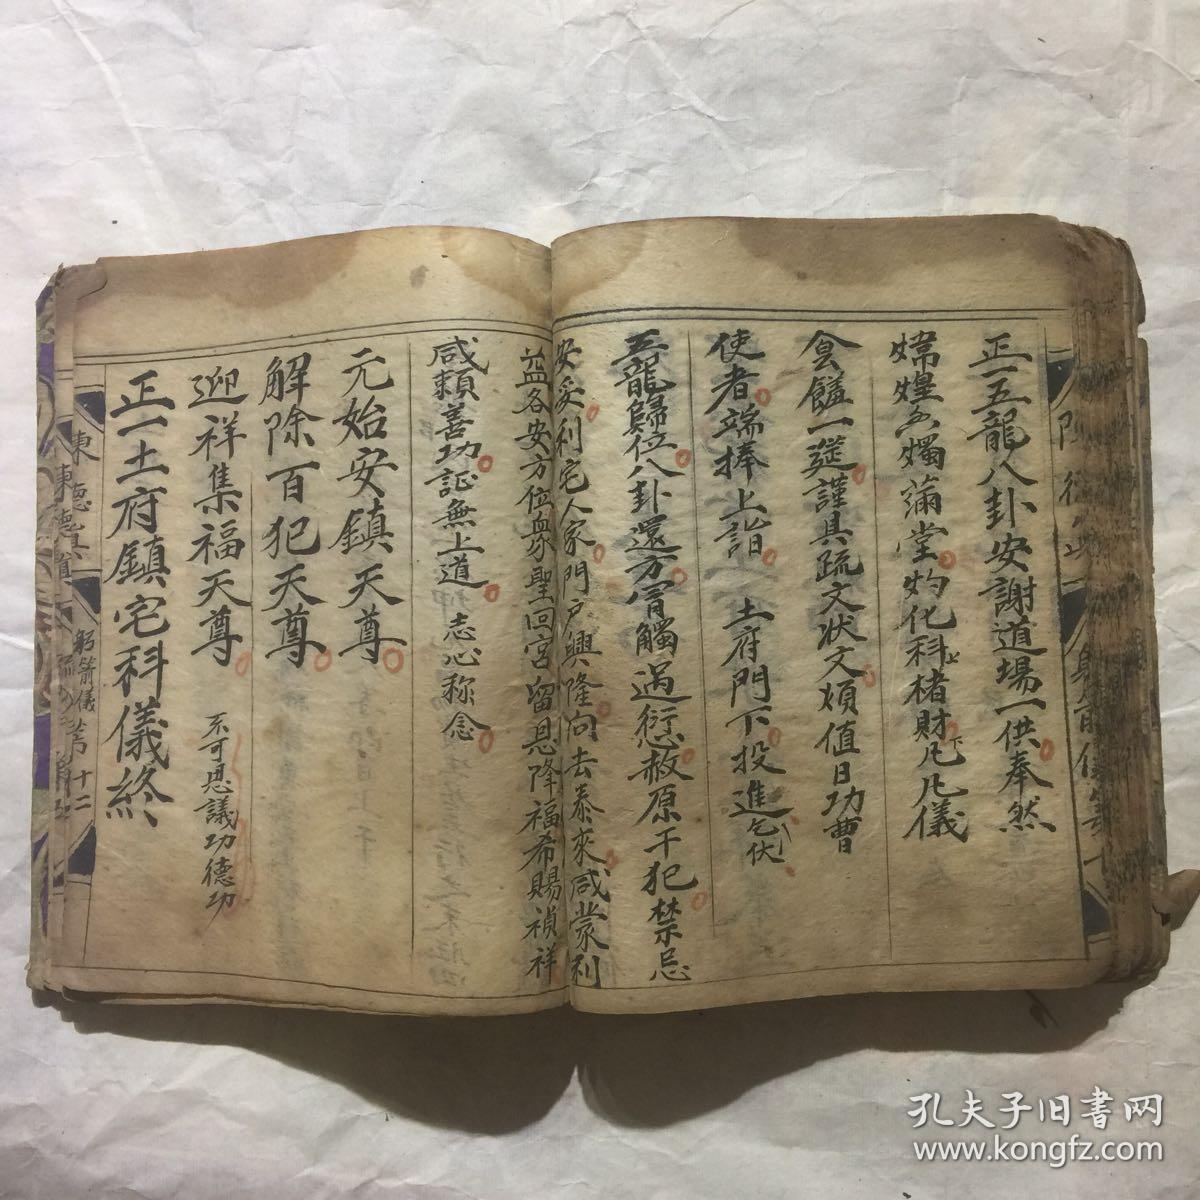 正一五龍八卦安謝道場一供奉然
煒煌久燭滿堂灼化科上楮財下凡凡儀
食饈一筵謹具疏文狀文煩值日功曹
使者端捧上詣 土府門下投進乞伏
五龍歸位八卦還方冐觸過愆赦原干犯禁忌
安妥利宅人家門戸興隆向去泰來咸蒙利
益各安方位眾聖回宮留恩降福希賜禎祥
咸頼善功証無上道 志心称念
元始安鎮天尊
解除百犯天尊
迎祥集福天尊 不可思議功德功
正一土府鎮宅科儀終
東德
十二
孔夫子旧書网
www.kongfz.com